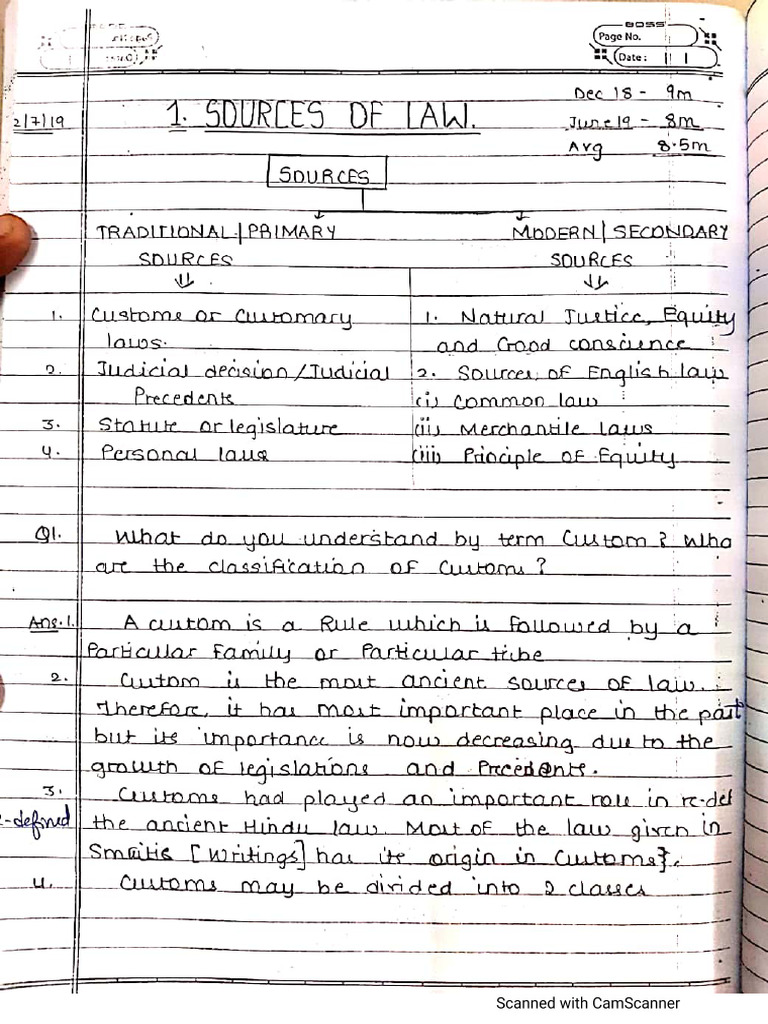 BOSS
Page No.
Date:
Dec 18 - 9m
2/7/19 1. SOURCES OF LAW. June 19 - 8m
Avg 8.5m
SOURCES
TRADITIONAL | PRIMARY MODERN | SECONDARY
SOURCES SOURCES
1. Custome or Customary 1. Natural Justice, Equity
laws. and Good conscience
2. Judicial decision / Judicial 2. Sources of English law
Precedents (i) Common law
3. Statute or legislature (ii) Merchantile laws
4. Personal laws (iii) Principle of Equity
Q1. What do you understand by term Custom? Wha
are the classification of Customs?
Ans.1. A custom is a Rule which is followed by a
Particular Family or Particular tribe
2. Custom is the most ancient sources of law.
Therefore, it has most important place in the past
but its importance is now decreasing due to the
growth of legislations and Precedents.
3. Customs had played an important role in re-def
e-defined the ancient Hindu law. Most of the law given in
Smritis [Writings] has its origin in Customs}.
4. Customs may be divided into 2 classes
Scanned with CamScanner